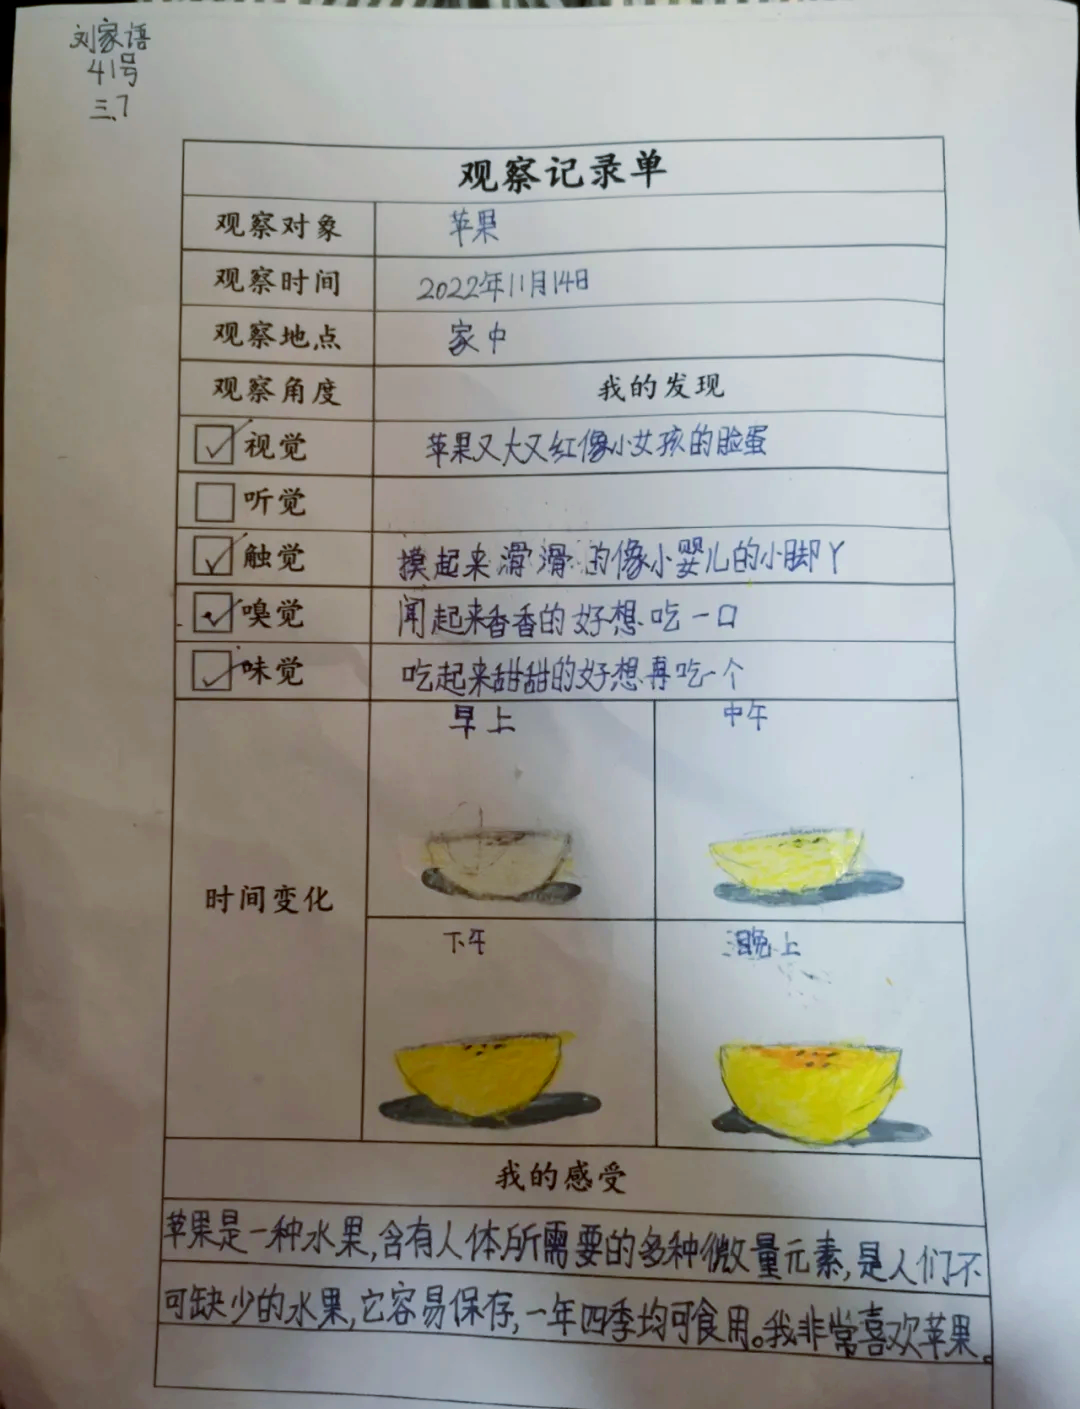 刘家语
41号
三.7
观察记录单
观察对象 苹果
观察时间 2022年11月14日
观察地点 家中
观察角度 我的发现
视觉 苹果又大又红像小女孩的脸蛋
听觉
触觉 摸起来滑滑的像小婴儿的小脚丫
嗅觉 闻起来香香的好想吃一口
味觉 吃起来甜甜的好想再吃一个
早上 中午
时间变化
下午 晚上
我的感受
苹果是一种水果,含有人体所需要的多种微量元素,是人们不
可缺少的水果,它容易保存,一年四季均可食用。我非常喜欢苹果。